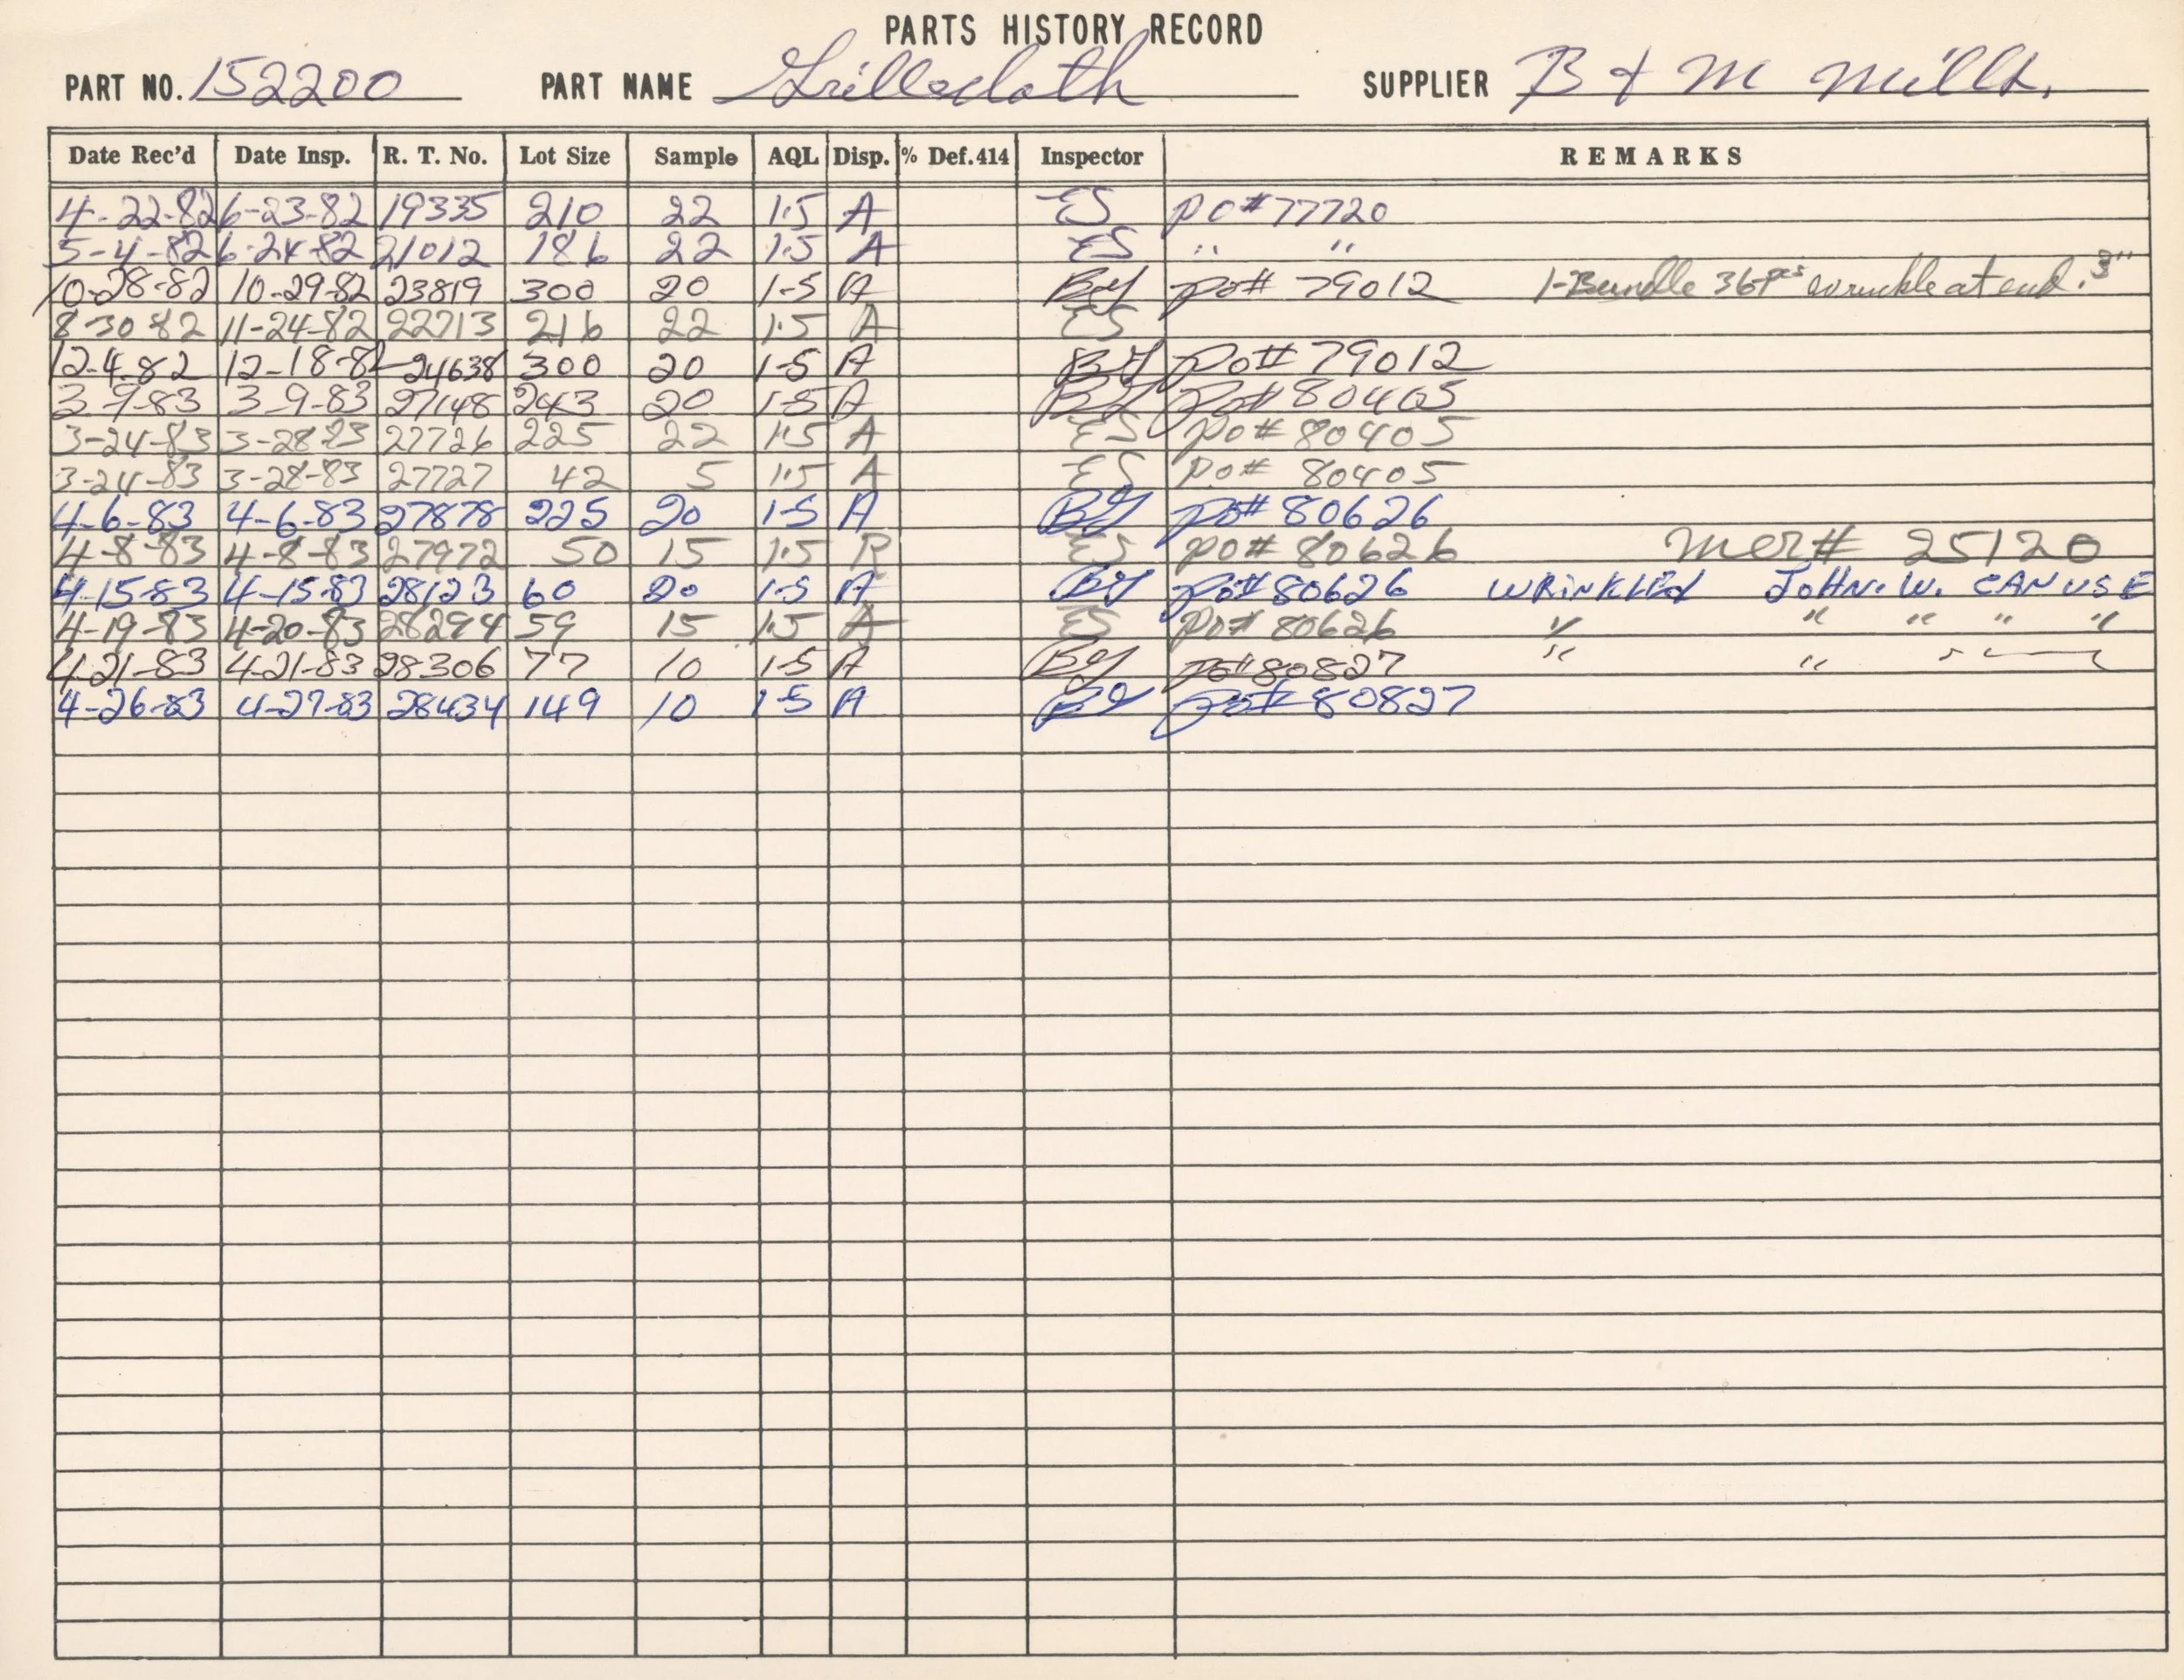 PARTS HISTORY RECORD
PART NO. 152200 PART NAME Grillecloth SUPPLIER B & M Mills.
Date Rec'd Date Insp. R. T. No. Lot Size Sample AQL Disp. % Def.414 Inspector REMARKS
4-22-82 6-23-82 19335 210 22 1.5 A ES PO#77720
5-4-82 6-24-82 21012 186 22 1.5 A ES " "
10-28-82 10-29-82 23819 300 20 1-5 A BY po# 79012 1-Bundle 36 pcs wrinkle at end. 3"
8-30-82 11-24-82 22713 216 22 1.5 A ES
12-4-82 12-18-82 24638 300 20 1-5 A BY po# 79012
3-9-83 3-9-83 27148 243 20 1-5 A BY po# 80405
3-24-83 3-28-83 27726 225 22 1.5 A ES Po# 80405
3-24-83 3-28-83 27727 42 5 1.5 A ES Po# 80405
4-6-83 4-6-83 27878 225 20 1-5 A BY po# 80626
4-8-83 4-8-83 27972 50 15 1.5 R ES PO# 80626 mer# 25120
4-15-83 4-15-83 28123 60 20 1-5 A BY po# 80626 WRiNKLED JOHN. W. CAN USE
4-19-83 4-20-83 28294 59 15 1.5 A ES Po# 80626 " " " " "
4-21-83 4-21-83 28306 77 10 1-5 A BY po# 80827 " "
4-26-83 4-27-83 28434 149 10 1-5 A BY po# 80827